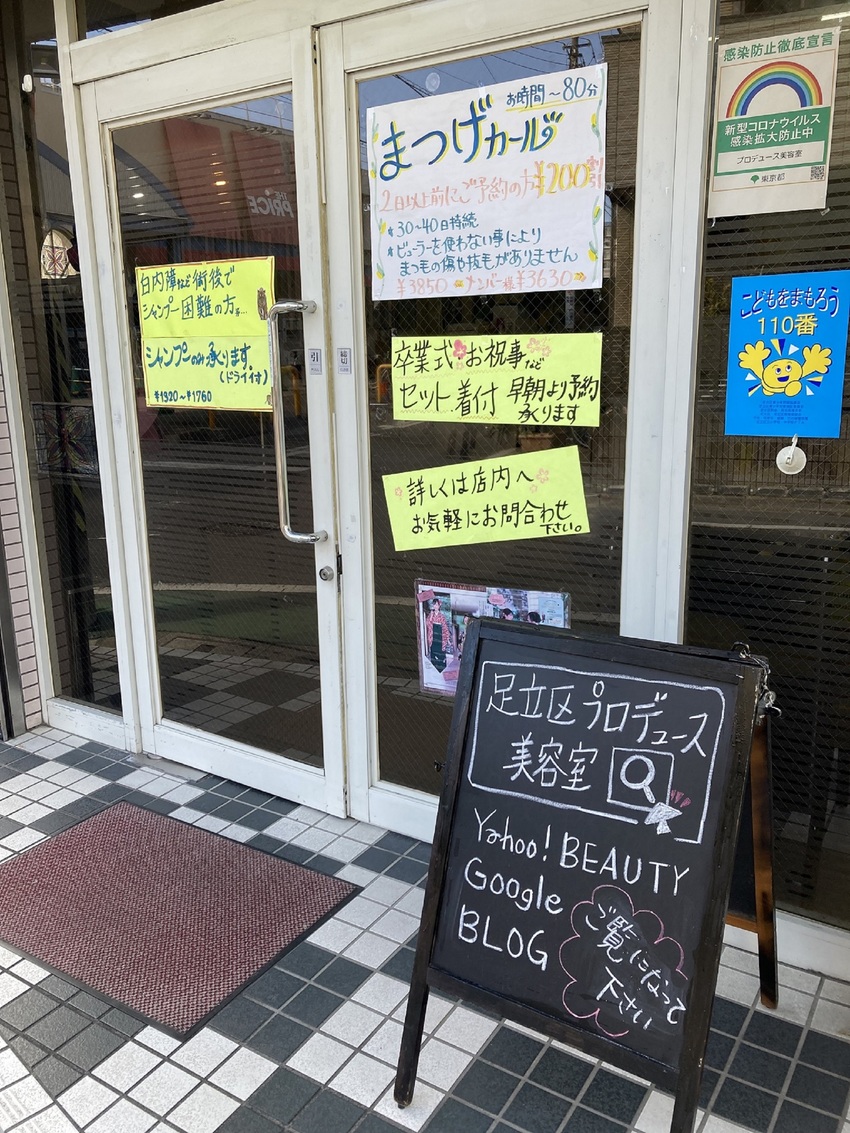 まつげカール
お時間～80分
2日以上前にご予約の方¥200割引
*30～40日持続
*ビューラーを使わない事により
まつ毛の傷や抜毛がありません
¥3850 メンバー様¥3630
白内障など術後で
シャンプー困難の方...
シャンプーのみ承ります。
(ドライ付)
¥1920～¥1760
引
卒業式 お祝事など
セット着付 早朝より予約
承ります
詳しくは店内へ
お気軽にお問合わせ
下さい。
感染防止徹底宣言
新型コロナウイルス
感染拡大防止中
プロデュース美容室
東京都
こどもをまもろう
110番
PRICE
足立区プロデュース
美容室
Yahoo! BEAUTY
Google
BLOG
ご覧になって
下さい